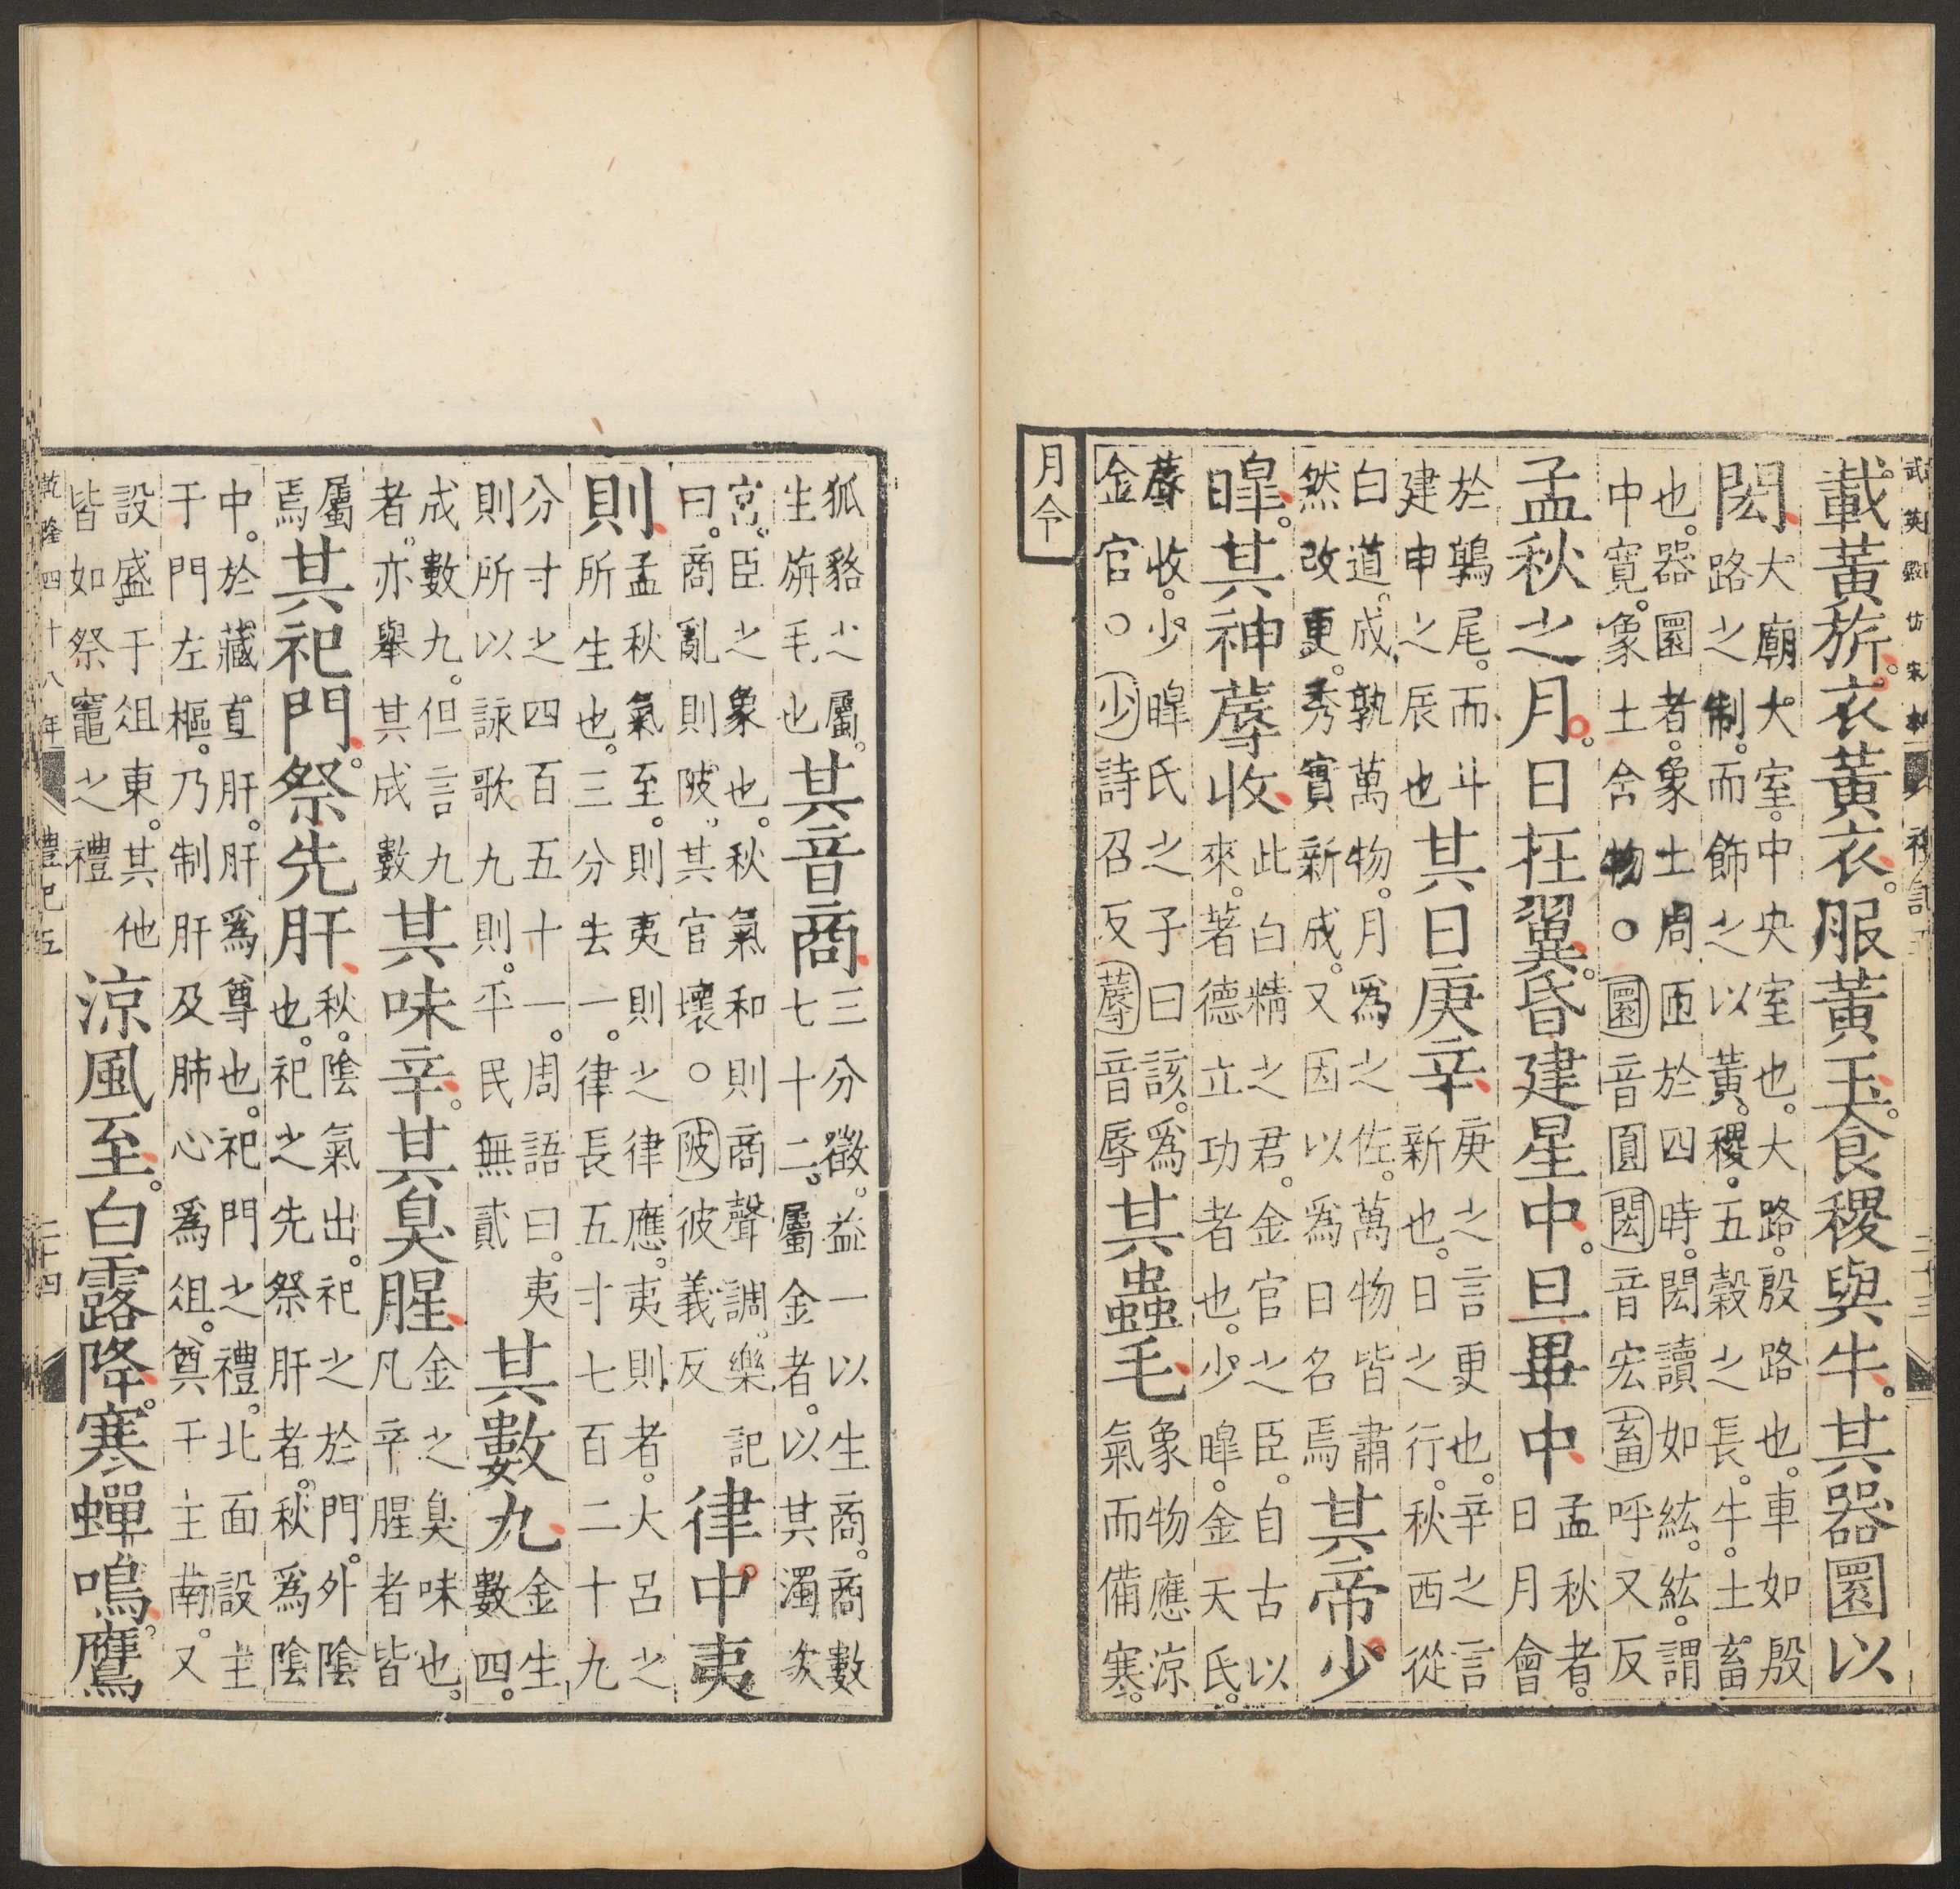 武英殿仿宋本 禮記五 二十三
載黃旂衣黃衣服黃玉食稷與牛其器圜以
閎大廟大室中央室也大路殷路也車如殷路之制而飾之以黃稷五穀之長牛土畜
也器圜者象土周匝於四時閎讀如紘紘謂中寬象土含物○圜音圓閎音宏畜呼又反
孟秋之月日在翼昏建星中旦畢中孟秋者日月會
於鶉尾而斗建申之辰也其日庚辛庚之言更也辛之言新也日之行秋西從
白道成孰萬物月爲之佐萬物皆肅然改更秀實新成又因以爲日名焉其帝少
皞其神蓐收此白精之君金官之臣自古以來著德立功者也少皞金天氏
蓐收少皞氏之子曰該爲金官○少詩召反蓐音辱其蟲毛象物應涼氣而備寒
月令
狐貉之屬生旃毛也其音商三分徵益一以生商商數七十二屬金者以其濁次
宮臣之象也秋氣和則商聲調樂記曰商亂則陂其官壞○陂彼義反律中夷
則孟秋氣至則夷則之律應夷則者大呂之所生也三分去一律長五寸七百二十九
分寸之四百五十一周語曰夷則所以詠歌九則平民無貳其數九金生數四
成數九但言九者亦舉其成數其味辛其臭腥金之臭味也凡辛腥者皆
屬焉其祀門祭先肝秋陰氣出祀之於門外陰也祀之先祭肝者秋爲陰
中於藏直肝肝爲尊也祀門之禮北面設主于門左樞乃制肝及肺心爲俎奠于主南又
設盛于俎東其他皆如祭竈之禮涼風至白露降寒蟬鳴鷹
乾隆四十八年 禮記五 二十四